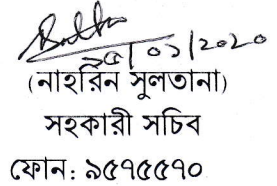 ১৫/০১/২০২০
(নাহরিন সুলতানা)
সহকারী সচিব
ফোন: ৯৫৭৫৫৭০